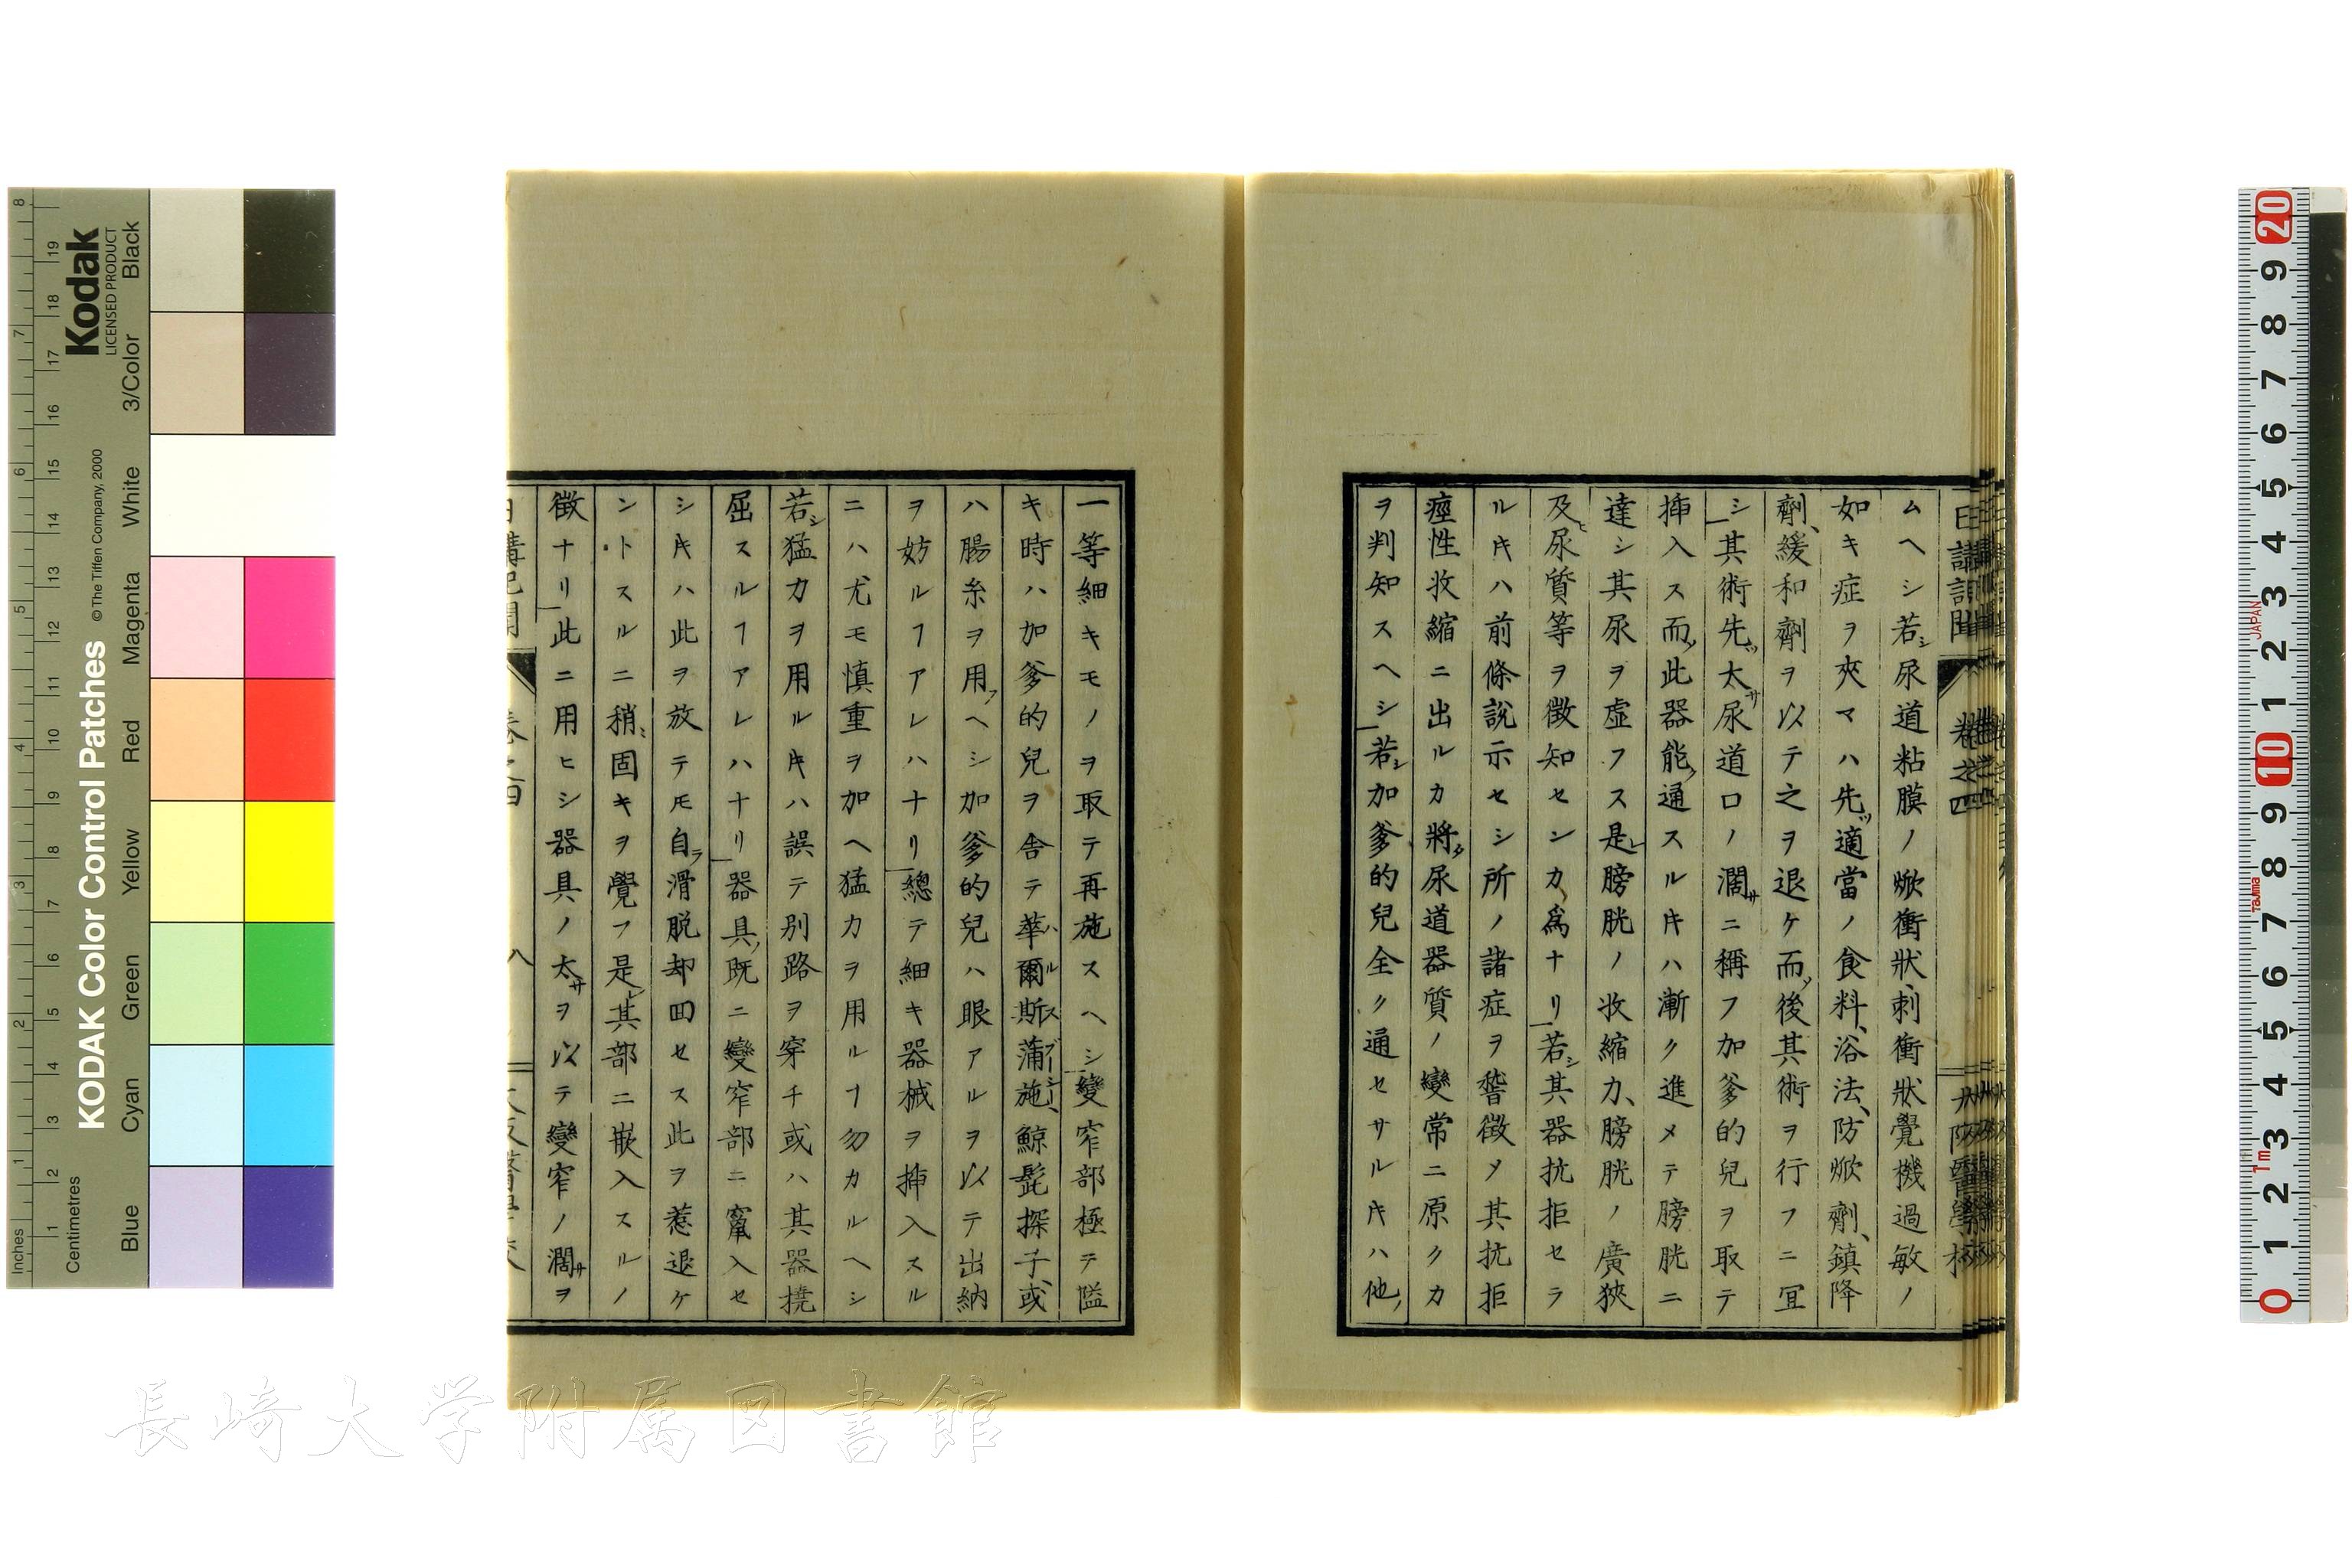 日講記聞 卷之四 大阪醫學校
ムヘシ若シ尿道粘膜ノ焮衝狀、刺衝狀覺機過敏ノ
如キ症ヲ夾マハ先ツ適當ノ食料、浴法、防焮劑、鎮降
劑、緩和劑ヲ以テ之ヲ退ケ而ノ後其術ヲ行フニ冝
シ其術先ツ太サ尿道口ノ濶サニ稱フ加爹的兒ヲ取テ
揷入ス而ノ此器能ク通スルキハ漸ク進メテ膀胱ニ
達シ其尿ヲ虛フス是レ膀胱ノ收縮力、膀胱ノ廣狹
及ヒ尿質等ヲ徵知センカ爲ナリ若シ其器抗拒セラ
ルキハ前條說示セシ所ノ諸症ヲ督徵メ其抗拒
痙性收縮ニ出ルカ將タ尿道器質ノ變常ニ原クカ
ヲ判知スヘシ若シ加爹的兒全ク通セサルキハ他ノ
一等細キモノヲ取テ再施スヘシ變窄部極テ隘
キ時ハ加爹的兒ヲ舍テ華爾斯蒲施、鯨髭探子或
ハ腸糸ヲ用フヘシ加爹的兒ハ眼アルヲ以テ出納
ヲ妨ルヿアレハナリ總テ細キ器械ヲ揷入スル
ニハ尤モ慎重ヲ加ヘ猛力ヲ用ルヿ勿カルヘシ
若シ猛力ヲ用ルキハ誤テ別路ヲ穿チ或ハ其器撓
屈スルヿアレハナリ器具既ニ變窄部ニ竄入セ
シキハ此ヲ放テモ自ラ滑脱却回セス此ヲ惹退ケ
ントスルニ稍固キヲ覺フ是レ其部ニ嵌入スルノ
徵ナリ此ニ用ヒシ器具ノ太サヲ以テ變窄ノ濶サヲ
日講記聞 卷之四 八 大阪醫學校
長崎大学附属図書館
KODAK Color Control Patches
Kodak
LICENSED PRODUCT
© The Tiffen Company, 2000
Inches
Centimetres
Blue Cyan Green Yellow Red Magenta White 3/Color Black
JAPAN
Tajima
1m